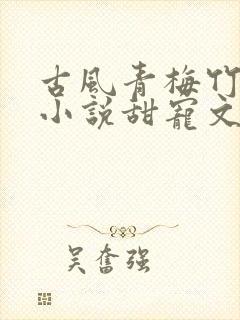 古風青梅竹
小說甜寵文
吴奮強